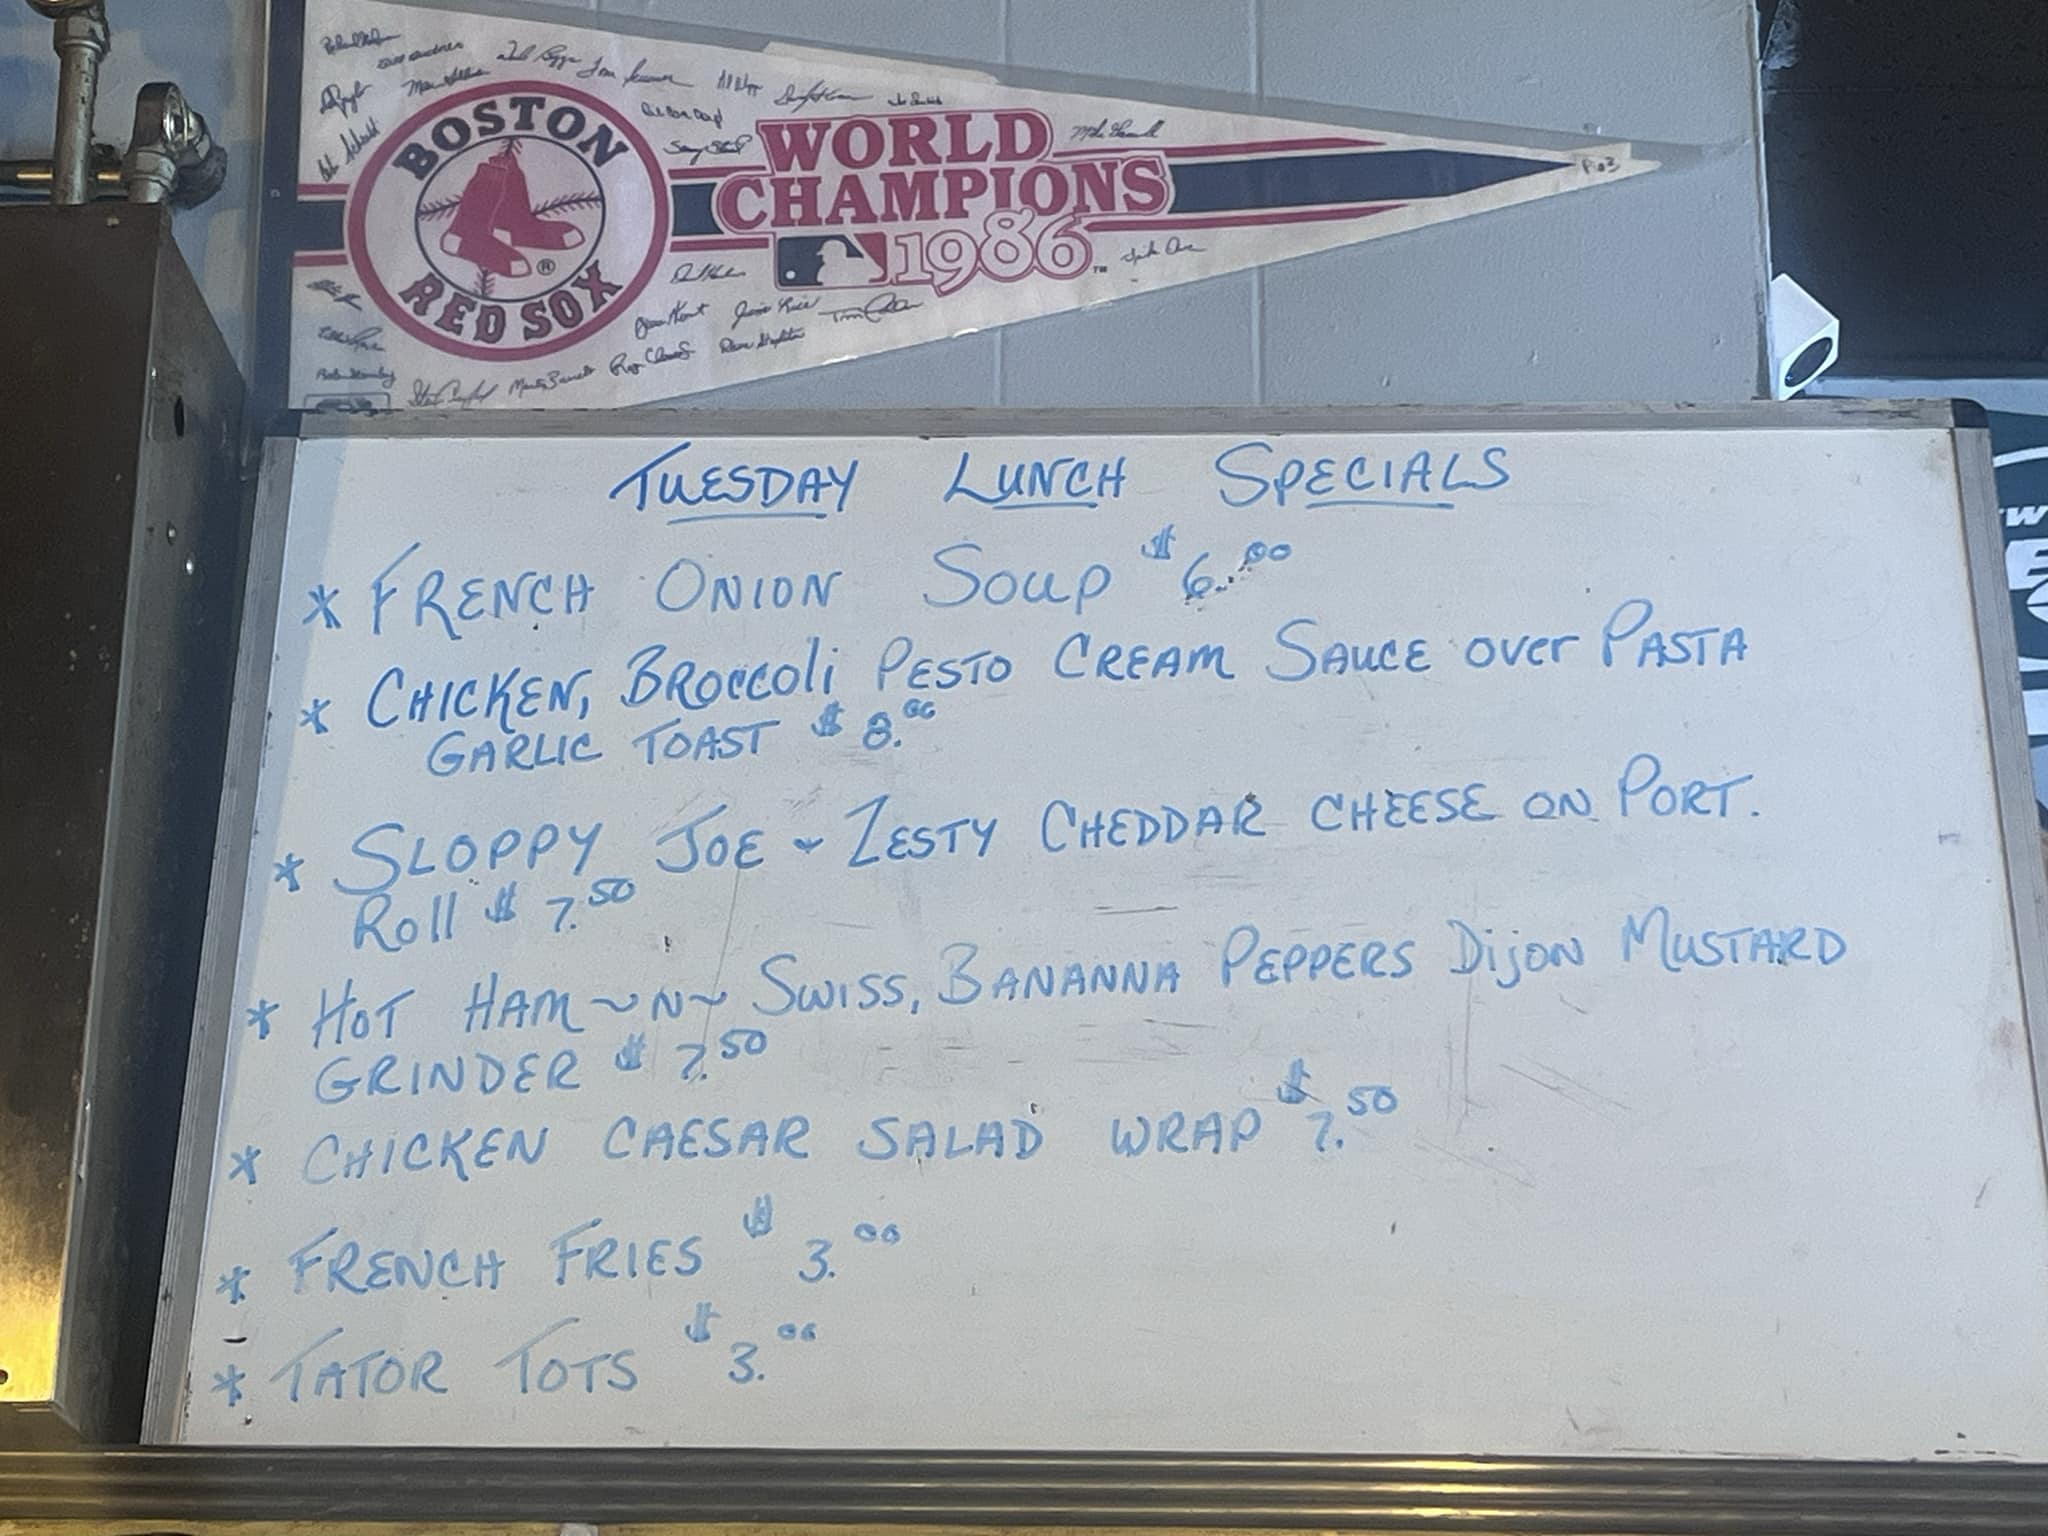 BOSTON
RED SOX
WORLD
CHAMPIONS
1986
TUESDAY LUNCH SPECIALS
* FRENCH ONION SOUP $6.00
* CHICKEN, BROCCOLI PESTO CREAM SAUCE OVER PASTA
GARLIC TOAST $8.00
* SLOPPY JOE - ZESTY CHEDDAR CHEESE ON PORT.
ROLL $7.50
* HOT HAM ~N~ SWISS, BANANNA PEPPERS DIJON MUSTARD
GRINDER $7.50
* CHICKEN CAESAR SALAD WRAP $7.50
* FRENCH FRIES $3.00
* TATOR TOTS $3.00